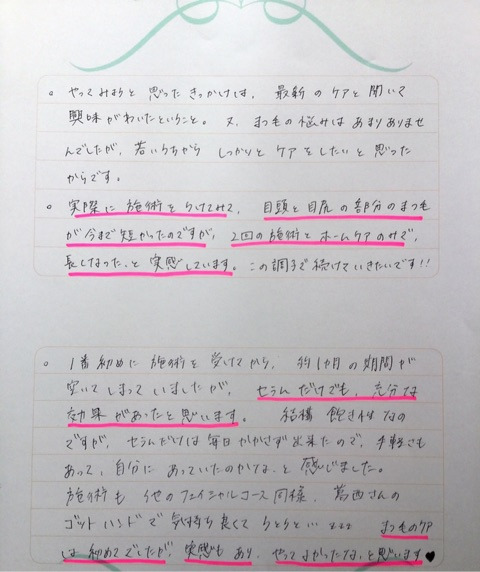 。やってみようと思ったきっかけは、最新のケアと聞いて
興味がわいたということ。又、まつ毛の悩みはあまりありませ
んでしたが、若いうちから しっかりとケアをしたいと思った
からです。
。実際に施術をうけてみて、目頭と目尻の部分のまつ毛
が今まで短かったのですが、2回の施術とホームケアのみで、
長くなった、と実感しています。この調子で続けていきたいです!!
。1番初めに施術を受けてから、約1ヶ月の期間が
空いてしまっていましたが、セラムだけでも、充分な
効果があったと思います。 結構飽き性なの
ですが、セラムだけは毎日かかさず出来たので、手軽さも
あって、自分にあっていたのかな、と感じました。
施術も他のフェイシャルコース同様、葛西さんの
ゴットハンドで気持ち良くてうとうと… zzz まつ毛のケア
は初めてでしたが、実感もあり、やってよかったな、と思います♥